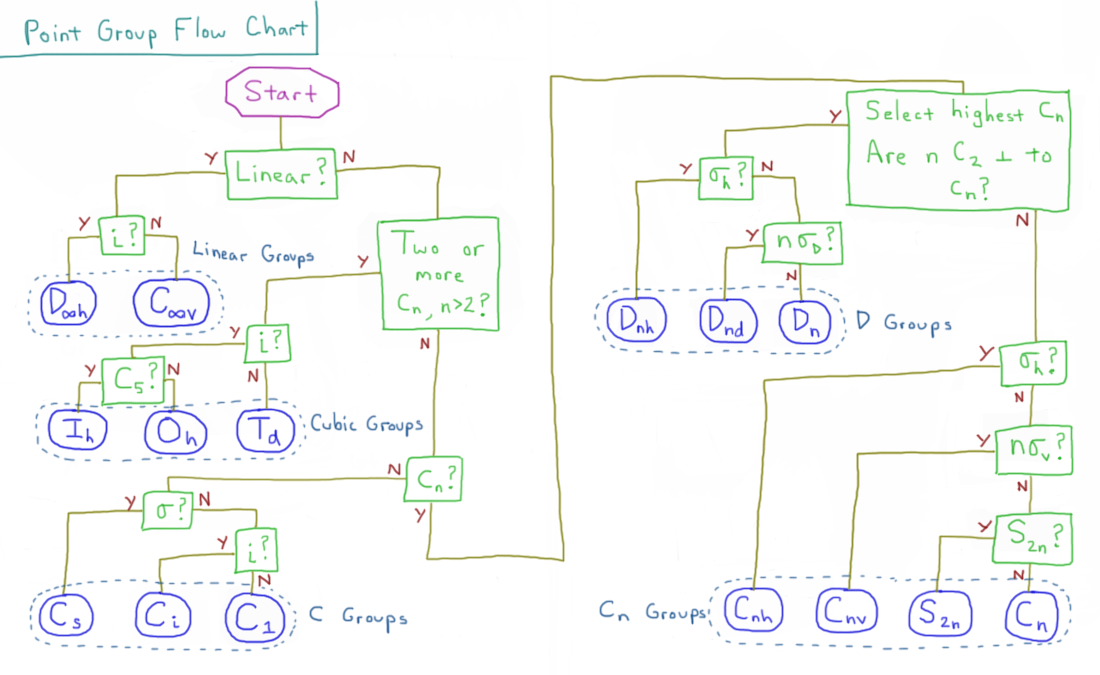 Point Group Flow Chart
Start
Linear?
Y
N
i?
Y
N
Linear Groups
D∞h
C∞v
Two or
more
Cn, n>2?
Y
N
i?
Y
N
C5?
Y
N
Ih
Oh
Td
Cubic Groups
Cn?
N
Y
σ?
Y
N
i?
Y
N
Cs
Ci
C1
C Groups
Select highest Cn
Are n C2 ⊥ to
Cn?
Y
N
σh?
Y
N
nσD?
Y
N
Dnh
Dnd
Dn
D Groups
σh?
Y
N
nσv?
Y
N
S2n?
Y
N
Cn Groups
Cnh
Cnv
S2n
Cn